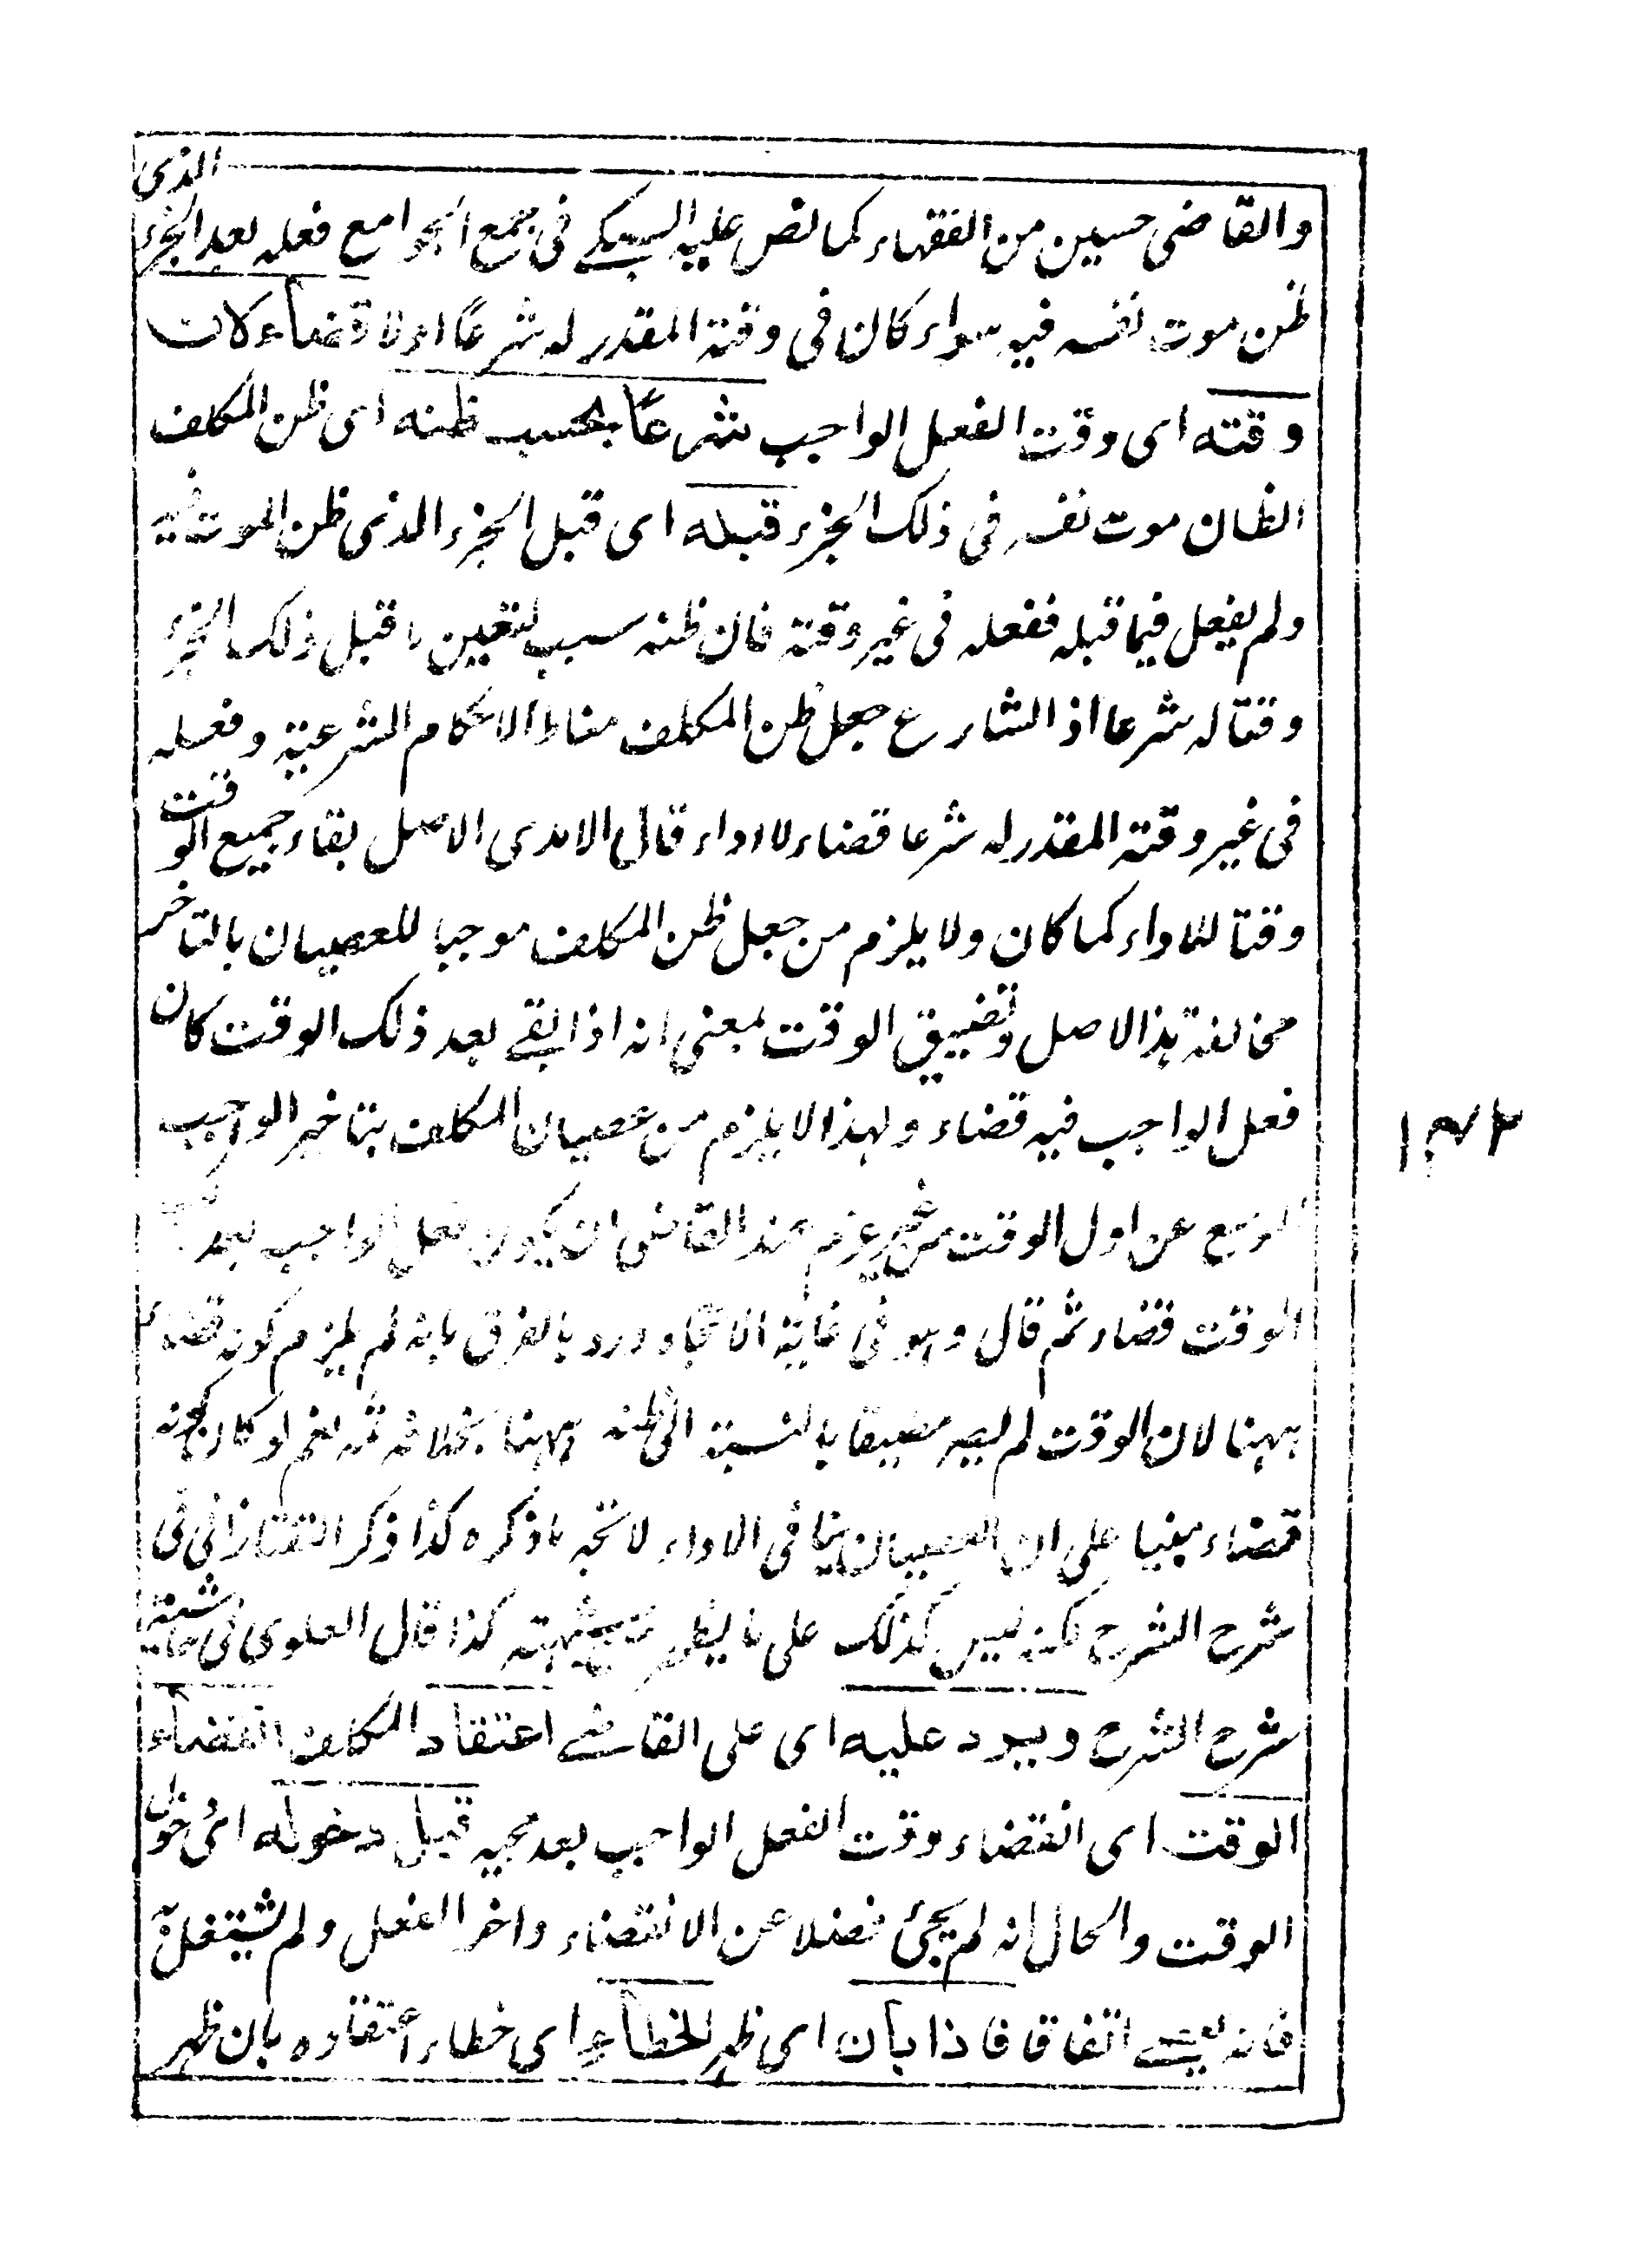 والقاضى حسين من الفقهاء كما نص عليه السبكى فى جمع الجوامع فعله بعد الجزء الذى
ظن موت نفسه فيه سواء كان فى وقته المقدر له شرعا اولا قضاء لان
وقته اى وقت الفعل الواجب شرعاً بحسب ظنه اى ظن المكلف
الظان موت نفسه فى ذلك الجزء قبله اى قبل الجزء الذى ظن الموت فيه
ولم يفعل فيما قبله ففعله فى غير وقته فان ظنه سبب لتعين ما قبل ذلك الجزء
وقتا له شرعا اذ الشارع جعل ظن المكلف مناط الاحكام الشرعية وفعله
فى غير وقته المقدر له شرعا قضاء لا اداء قال الامدى الاصل بقاء جميع الوقت
وقتا للاداء كما كان ولا يلزم من جعل ظن المكلف موجبا للعصيان بالتاخر
مخالفة هذا الاصل وتضييق الوقت بمعنى انه اذا بقى بعد ذلك الوقت كان
فعل الواجب فيه قضاء ولهذا لا يلزم من عصيان المكلف بتاخير الواجب
الموسع عن اول الوقت من غير عزم عند القاضى ان يكون فعل الواجب بعد
الوقت قضاء ثم قال وهو فى غاية الاتجاه ورد بالفرق بانه لم يلزم كونه قضاء
ههنا لان الوقت لم يصر مضيقا بالنسبة الى ظنه ههنا بخلافه ثمه نعم لو كان كونه
قضاء مبنيا على ان العصيان ينافى الاداء لاتجه ما ذكره كذا ذكر التفتازانى فى
شرح الشرح لكنه ليس كذلك على ما يظهر كذا قال العلوى فى حاشية
شرح الشرح ويرد عليه اى على القاضى اعتقاد المكلف انقضاء
الوقت اى انقضاء وقت الفعل الواجب بعد مجيه قبل دخوله اى دخول
الوقت والحال انه لم يجئ فضلا عن الانقضاء واخر الفعل ولم يشتغل به
فانه يعصى اتفاقا فاذا بان اى ظهر الخطاء اى خطاء اعتقاده بان ظهر